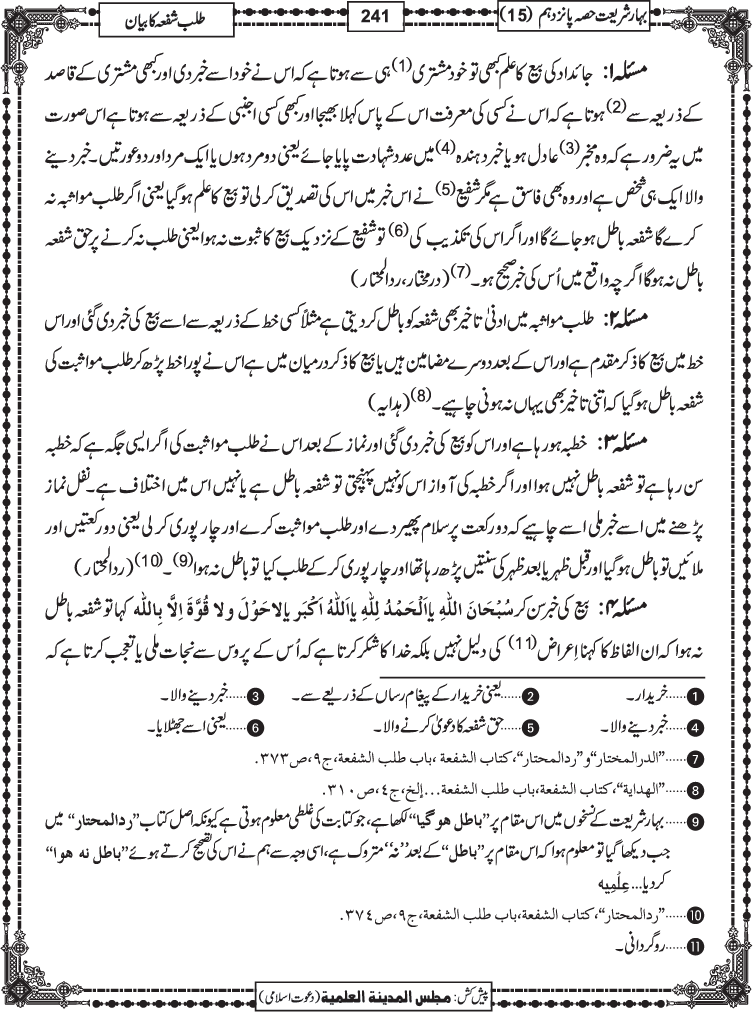 بہار شریعت حصہ پانزدہم (15)
241
طلب شفعہ کا بیان
مسئلہ ۱: جائداد کی بیع کا علم کبھی تو خود مشتری (1) ہی سے ہوتا ہے کہ اس نے خود اسے خبر دی اور کبھی مشتری کے قاصد
کے ذریعہ سے (2) ہوتا ہے کہ اس نے کسی کی معرفت اس کے پاس کہلا بھیجا اور کبھی کسی اجنبی کے ذریعہ سے ہوتا ہے اس صورت
میں یہ ضرور ہے کہ وہ مخبر (3) عادل ہو یا خبر دہندہ (4) میں عدد شہادت پایا جائے یعنی دو مرد ہوں یا ایک مرد اور دو عورتیں۔ خبر دینے
والا ایک ہی شخص ہے اور وہ بھی فاسق ہے مگر شفیع (5) نے اس خبر میں اس کی تصدیق کر لی تو بیع کا علم ہوگیا یعنی اگر طلب مواثبہ نہ
کرے گا شفعہ باطل ہو جائے گا اور اگر اس کی تکذیب کی (6) تو شفیع کے نزدیک بیع کا ثبوت نہ ہوا یعنی طلب نہ کرنے پر حق شفعہ
باطل نہ ہوگا اگرچہ واقع میں اُس کی خبر صحیح ہو۔ (7) (درمختار، ردالمحتار)
مسئلہ ۲: طلب مواثبہ میں ادنیٰ تاخیر بھی شفعہ کو باطل کر دیتی ہے مثلاً کسی خط کے ذریعہ سے اسے بیع کی خبر دی گئی اور اس
خط میں بیع کا ذکر مقدم ہے اور اس کے بعد دوسرے مضامین ہیں یا بیع کا ذکر درمیان میں ہے اس نے پورا خط پڑھ کر طلب مواثبت کی
شفعہ باطل ہوگیا کہ اتنی تاخیر بھی یہاں نہ ہونی چاہیے۔ (8) (ہدایہ)
مسئلہ ۳: خطبہ ہو رہا ہے اور اس کو بیع کی خبر دی گئی اور نماز کے بعد اس نے طلب مواثبت کی اگر ایسی جگہ ہے کہ خطبہ
سن رہا ہے تو شفعہ باطل نہیں ہوا اور اگر خطبہ کی آواز اس کو نہیں پہنچتی تو شفعہ باطل ہے یا نہیں اس میں اختلاف ہے۔ نفل نماز
پڑھنے میں اسے خبر ملی اسے چاہیے کہ دو رکعت پر سلام پھیر دے اور طلب مواثبت کرے اور چار پوری کر لی یعنی دو رکعتیں اور
ملائیں تو باطل ہوگیا اور قبل ظہر یا بعد ظہر کی سنتیں پڑھ رہا تھا اور چار پوری کر کے طلب کیا تو باطل نہ ہوا (9)۔ (10) (ردالمحتار)
مسئلہ ۴: بیع کی خبر سن کر سُبْحَانَ اللهِ یا اَلْحَمْدُ لِلّٰهِ یا اَللهُ اَكْبَر یا لاحَوْلَ ولا قُوَّةَ اِلاَّ بِاللّٰه کہا تو شفعہ باطل
نہ ہوا کہ ان الفاظ کا کہنا اِعراض (11) کی دلیل نہیں بلکہ خدا کا شکر کرتا ہے کہ اُس کے پروس سے نجات ملی یا تعجب کرتا ہے کہ
1 ……خریدار۔ 2 ……یعنی خریدار کے پیغام رساں کے ذریعے سے۔ 3 ……خبر دینے والا۔
4 ……خبر دینے والا۔ 5 ……حق شفعہ کا دعویٰ کرنے والا۔ 6 ……یعنی اسے جھٹلایا۔
7 ……”الدرالمختار“ و ”ردالمحتار“، کتاب الشفعة، باب طلب الشفعة، ج۹، ص۳۷۳.
8 ……”الهداية“، کتاب الشفعة، باب طلب الشفعة...إلخ، ج٤، ص۳۱۰.
9 ……بہار شریعت کے نسخوں میں اس مقام پر ”باطل ہوگیا“ لکھا ہے، جو کتابت کی غلطی معلوم ہوتی ہے کیونکہ اصل کتاب ”ردالمحتار“ میں
جب دیکھا گیا تو معلوم ہوا کہ اس مقام پر ”باطل“ کے بعد ”نہ“ متروک ہے، اسی وجہ سے ہم نے اس کی تصحیح کرتے ہوئے ”باطل نہ ہوا“
کر دیا... عِلْمِیه
10 ……”ردالمحتار“، کتاب الشفعة، باب طلب الشفعة، ج۹، ص۳۷٤.
11 ……روگردانی۔
پیش کش: مجلس المدينة العلمية (دعوت اسلامی)